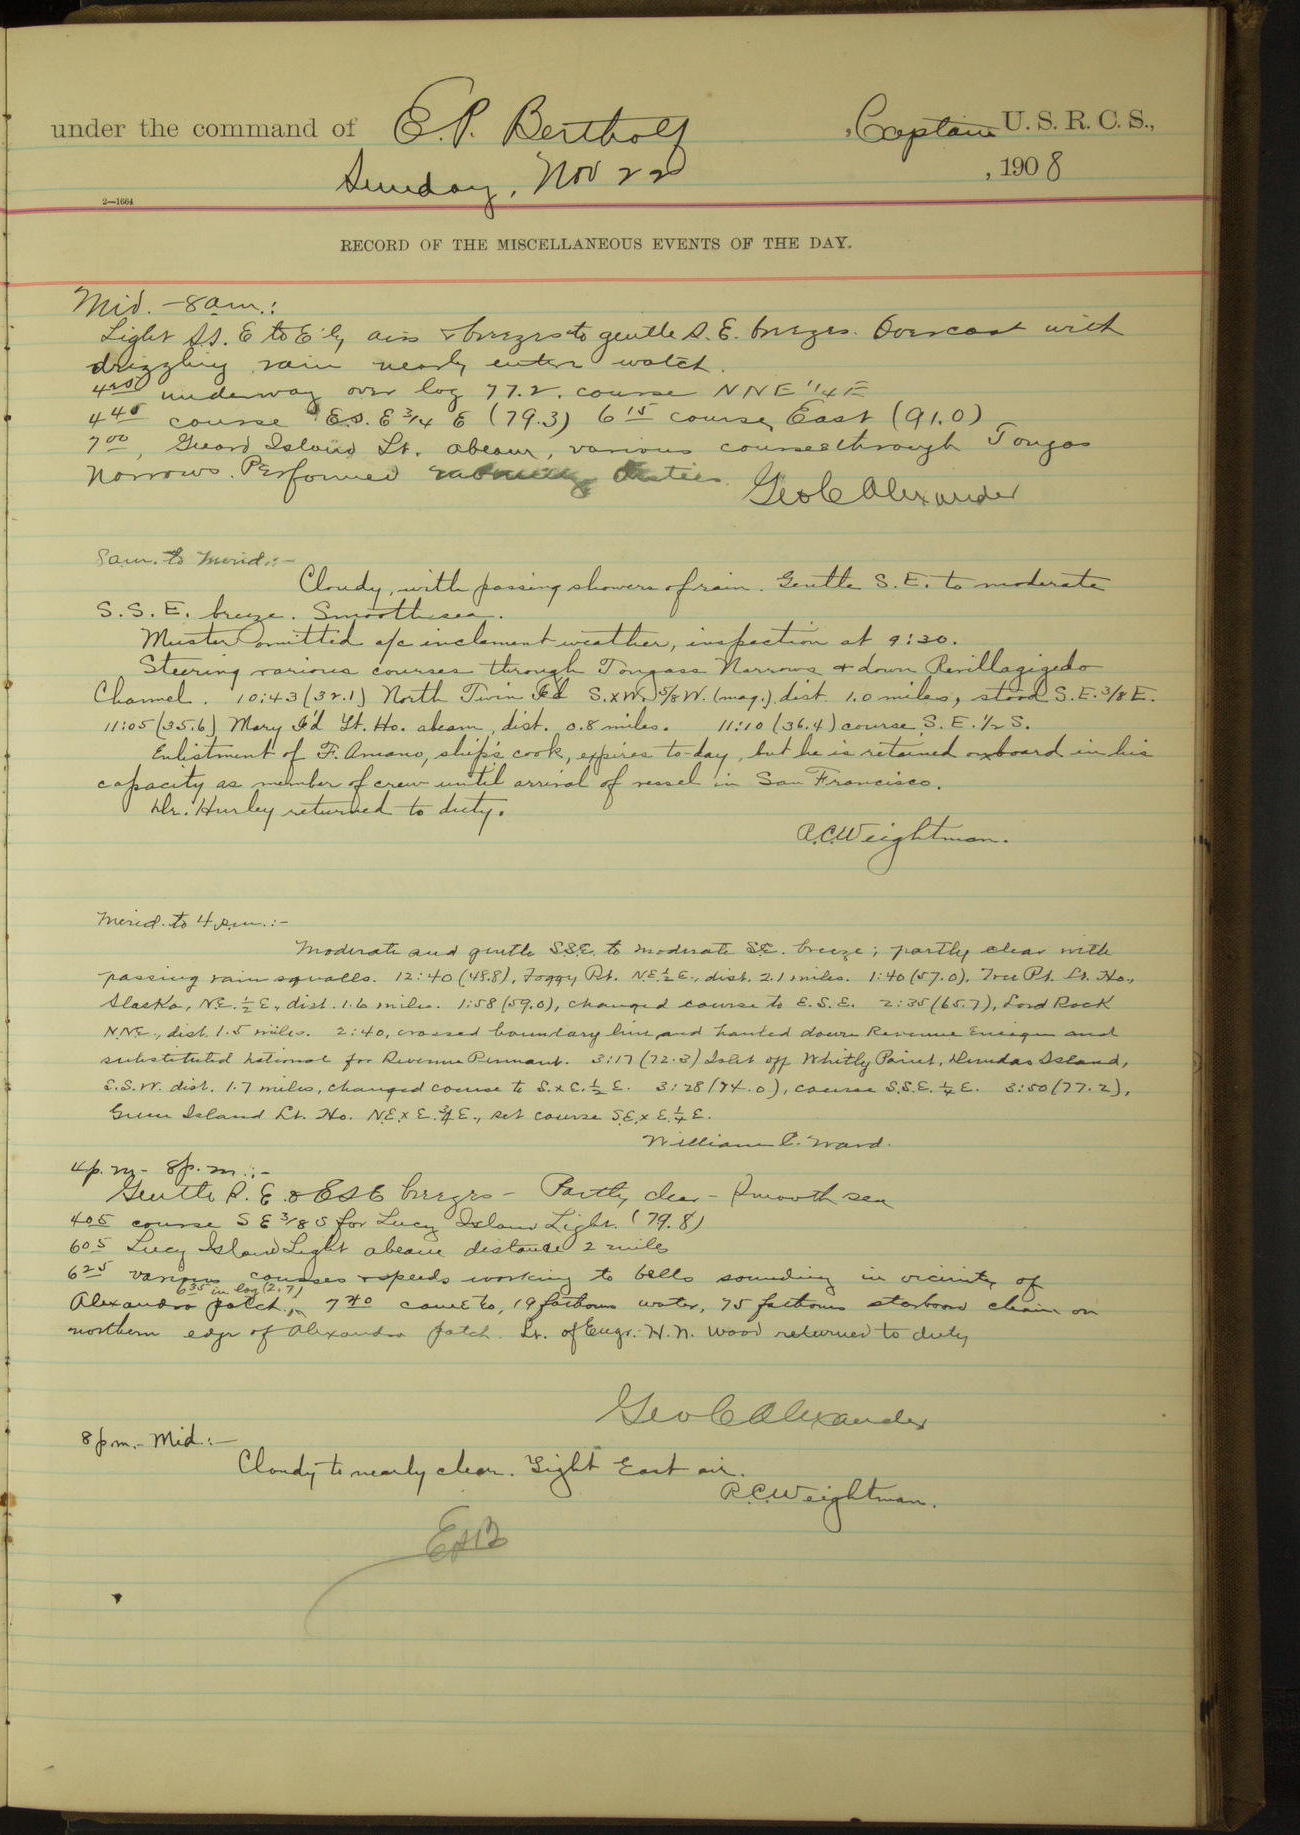 under the command of E. P. Bertholf , Captain U. S. R. C. S.,
Sunday, Nov 22 , 1908
2—1664
RECORD OF THE MISCELLANEOUS EVENTS OF THE DAY.
Mid. – 8 am.:
Light E to E'ly airs & breezes to gentle S. E. breezes. Overcast with
drizzling rain nearly entire watch.
underway over log 77.2. course NNE 1/4 E
4 45 course E.S.E 3/4 E (79.3) 6 15 course East (91.0)
7 00, Guard Island Lt. abeam, various courses through Tongas
Narrows. Performed morning duties. Geo C Alexander
8 am. to Merid.:–
Cloudy, with passing showers of rain. Gentle S. E. to moderate
S. S. E. breeze. Smooth sea.
Muster omitted a/c inclement weather, inspection at 9:30.
Steering various courses through Tongass Narrows & down Revillagigedo
Channel. 10:43 (32.1) North Twin I'd S.xW. 5/8 W. (mag.) dist. 1.0 miles, stood S. E. 3/8 E.
11:05 (35.6) Mary I'd Lt. Ho. abeam, dist. 0.8 miles. 11:10 (36.4) course S. E. 1/2 S.
Enlistment of F. Amano, ship's cook, expires to-day, but he is retained on board in his
capacity as member of crew until arrival of vessel in San Francisco.
Dr. Hurley returned to duty.
R.C. Weightman.
Merid. to 4 p.m.:–
Moderate and gentle S.S.E. to moderate S.E. breeze; partly clear with
passing rain squalls. 12:40 (48.8), Foggy Pt. N.E. 1/2 E., dist. 2.1 miles. 1:40 (57.0), Tree Pt. Lt. Ho.,
Alaska, N.E. 1/2 E., dist. 1.6 miles. 1:58 (59.0), changed course to E.S.E. 2:35 (65.7), Lord Rock
N.N.E., dist. 1.5 miles. 2:40, crossed boundary line and hauled down Revenue Ensign and
substituted national for Revenue Pennant. 3:17 (72.3) Islet off Whitly Point, Dundas Island,
S.S.W. dist. 1.7 miles, changed course to S. x E. 1/2 E. 3:28 (74.0), course S.S.E. 1/4 E. 3:50 (77.2),
Green Island Lt. Ho. N.E. x E. 3/4 E., set course S.E. x E. 1/4 E.
William C. Ward.
4 p. m – 8 p. m.:–
Gentle S. E. & ESE breezes – Partly clear – Smooth sea
4 05 course S E 3/8 S for Lucy Island Light. (79.8)
6 05 Lucy Island Light abeam distance 2 miles
6 25 various courses & speeds working to bells sounding in vicinity of
6 35 in log (2.7)
Alexandra patch., 7 40 came to, 19 fathoms water, 75 fathoms starboard chain on
northern edge of Alexandra patch. Lt. of Engr. H. N. Wood returned to duty
Geo C Alexander
8 p.m. – Mid.:–
Cloudy to nearly clear. Light East air.
R.C. Weightman.
EPB